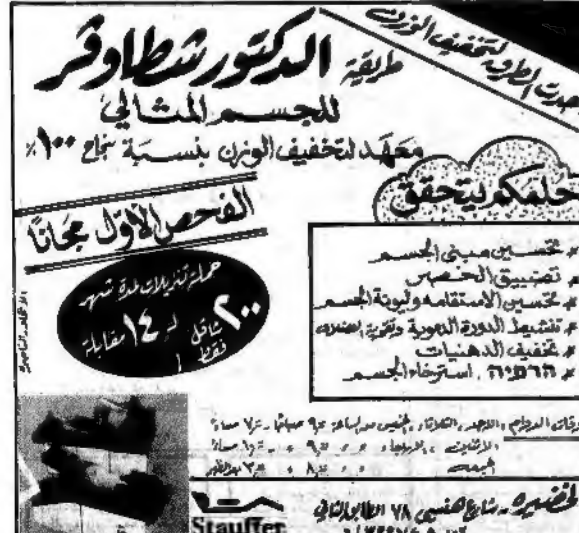 أحدث الطرق لتخفيف الوزن
طريقة الدكتور شطاوفر
للجسم المثالي
معهد لتخفيف الوزن بنسبة نجاح ١٠٠٪
حلمكم ليتحقق
الفحص الأول مجانا
حملة تنزيلات لمدة شهر
٢٠٠ شاقل لـ ١٤ مقابلة
فقط !
* تحسين مبنى الجسم
* تضييق الخصر
* تحسين الاستقامه وليونة الجسم
* تنشيط الدورة الدموية وتقوية العضلات
* تخفيف الدهنيات
* استرخاء الجسم
اوقات الدوام : الاحد ، الثلاثاء ، الخميس من الساعة ٩ صباحا - ٧ مساء
الاثنين ، الاربعاء
الجمعه
الخضيره - شارع هنسي ٧٨ الطابق الثاني
Stauffer